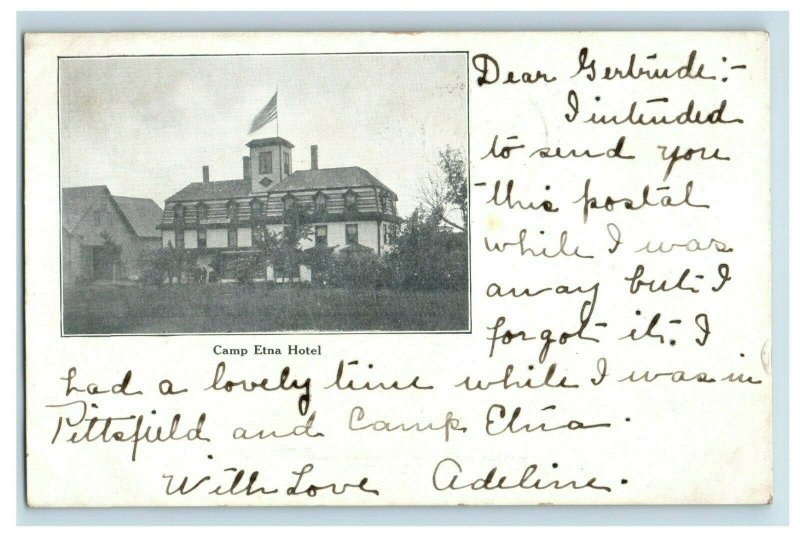 Dear Gertrude:-
I intended
to send you
this postal
while I was
away but I
forgot it. I
had a lovely time while I was in
Pittsfield and Camp Etna.
With Love Adeline.
Camp Etna Hotel